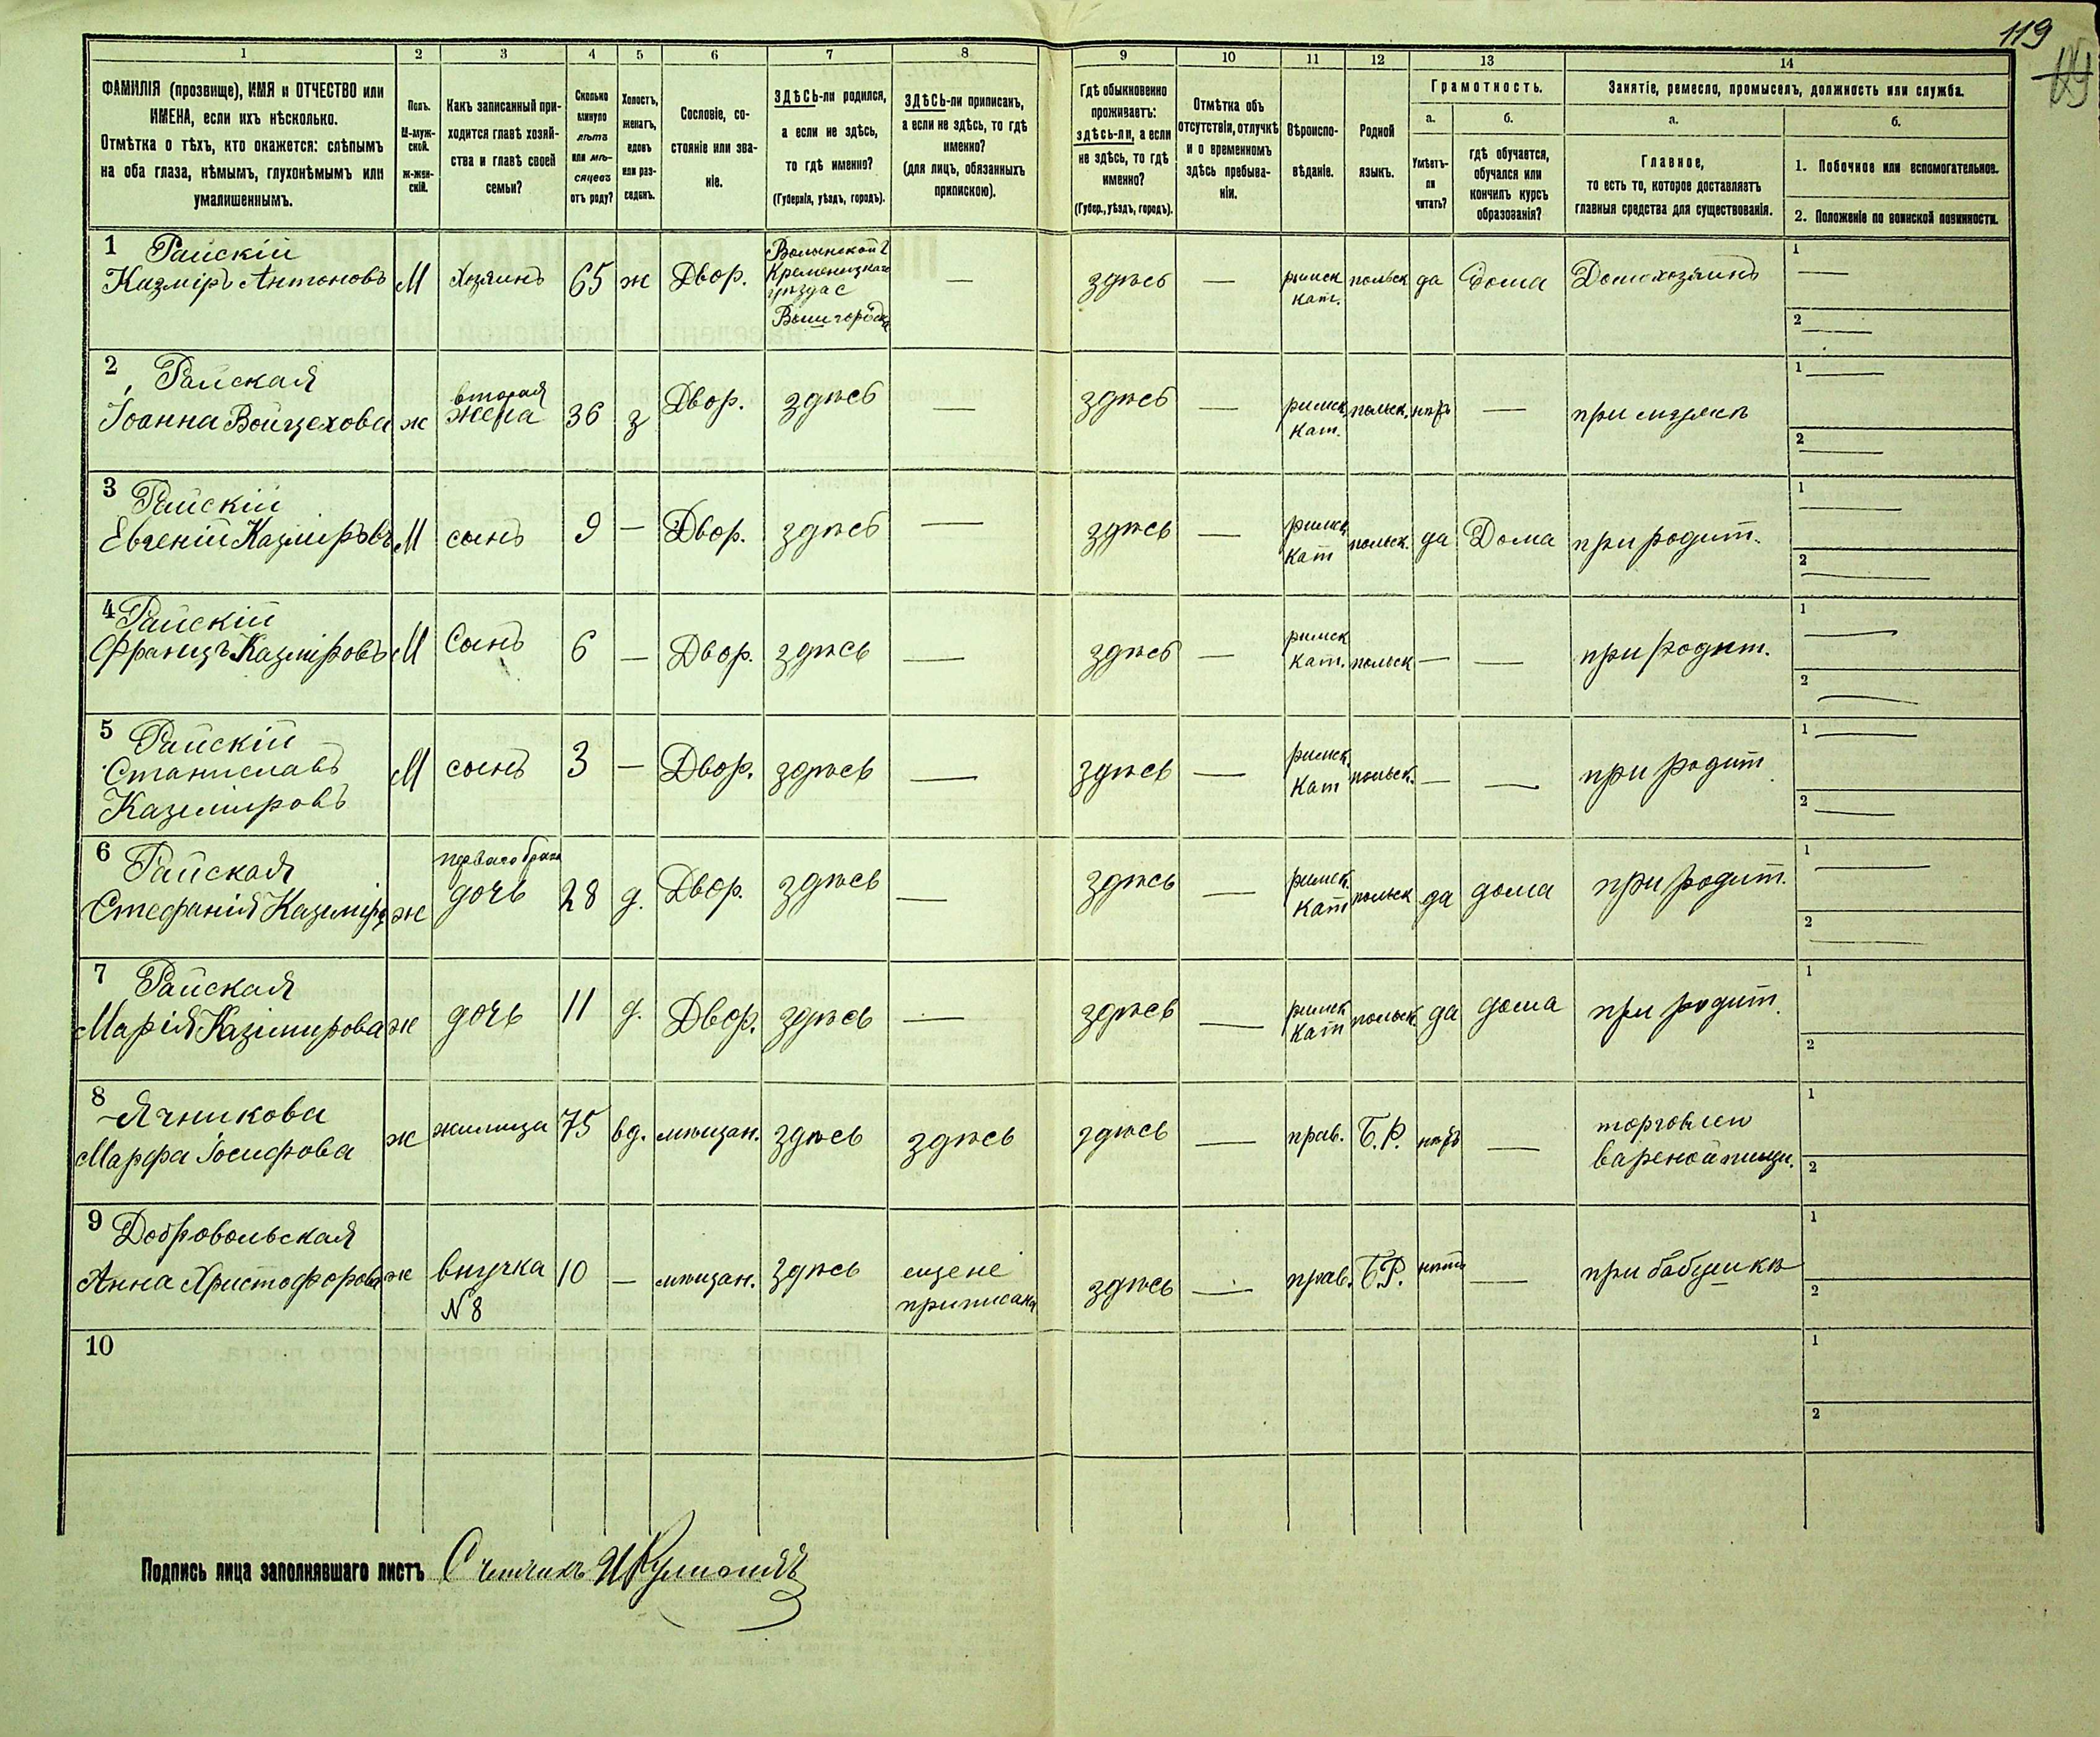 119
1
2
3
4
5
6
7
8
9
10
11
12
13
14
ФАМИЛІЯ (прозвище), ИМЯ и ОТЧЕСТВО или
ИМЕНА, если ихъ нѣсколько.
Отмѣтка о тѣхъ, кто окажется: слѣпымъ
на оба глаза, нѣмымъ, глухонѣмымъ или
умалишеннымъ.
Полъ.
М-муж-
ской.
ж-жен-
скій.
Какъ записанный при-
ходится главѣ хозяй-
ства и главѣ своей
семьи?
Сколько
минуло
лѣтъ
или мѣ-
сяцевъ
отъ роду?
Холостъ,
женатъ,
вдовъ
или раз-
веденъ.
Сословіе, со-
стояніе или зва-
ніе.
ЗДѢСЬ-ли родился,
а если не здѣсь,
то гдѣ именно?
(Губернія, уѣздъ, городъ).
ЗДѢСЬ-ли приписанъ,
а если не здѣсь, то гдѣ
именно?
(для лицъ, обязанныхъ
припискою).
Гдѣ обыкновенно
проживаетъ:
здѣсь-ли, а если
не здѣсь, то гдѣ
именно?
(Губер., уѣздъ, городъ).
Отмѣтка объ
отсутствіи, отлучкѣ
и о временномъ
здѣсь пребыва-
ніи.
Вѣроиспо-
вѣданіе.
Родной
языкъ.
Грамотность.
а.
Умѣетъ-
ли
читать?
б.
гдѣ обучается,
обучался или
кончилъ курсъ
образованія?
Занятіе, ремесло, промыселъ, должность или служба.
а.
Главное,
то есть то, которое доставляетъ
главныя средства для существованія.
б.
1. Побочное или вспомогательное.
2. Положеніе по воинской повинности.
1 Райскій
Казміръ Антоновъ М Хозяинъ 65 ж Двор. Волынской г
Кременецкаго
уѣзда с
Вышгородка — здѣсь — римск
кат. польск да Дома Домохозяинъ 1 —
2 —
2 Райская
Іоанна Войцехова ж вторая
жена 36 з Двор. здѣсь — здѣсь — римск
кат. польск. нѣтъ — при мужѣ 1 —
2 —
3 Райскій
Евгеній Казміровъ М сынъ 9 — Двор. здѣсь — здѣсь — римск
кат польск. да Дома при родит. 1 —
2 —
4 Райскій
Францъ Казміровъ М Сынъ 6 — Двор. здѣсь — здѣсь — римск
кат. польск — — при родит. 1 —
2 —
5 Райскій
Станиславъ
Казиміровъ М сынъ 3 — Двор. здѣсь — здѣсь — римск.
кат польск. — — при родит 1 —
2 —
6 Райская
Стефанія Казиміро ж перваго брака
дочь 28 д. Двор. здѣсь — здѣсь — римск.
кат польск да дома при родит. 1 —
2 —
7 Райская
Марія Казимирова ж дочь 11 д. Двор. здѣсь — здѣсь — римск
кат польск. да дома при родит. 1
2
8 Ячникова
Марфа Іосифова ж жилица 75 вд. мѣщан. здѣсь здѣсь здѣсь — прав. Б.Р. нѣтъ — торговлей
вареной пищи. 1
2
9 Добровольская
Анна Христофорова ж внучка
№ 8 10 — мѣщан. здѣсь еще не
приписана здѣсь — прав. Б.Р. нѣтъ — при бабушкѣ 1
2
10
1
2
Подпись лица заполнявшаго листъ Счетчикъ